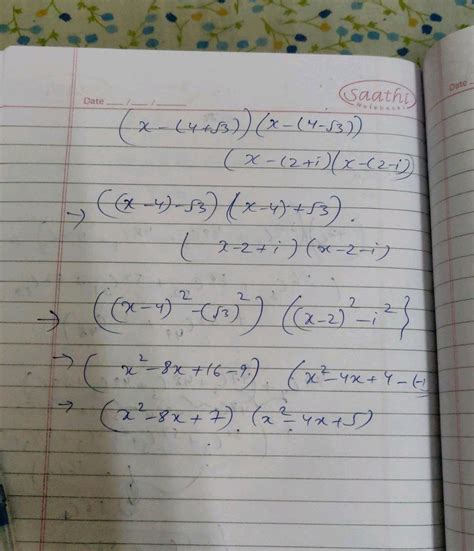 Saathi
Notebooks
Date __/__/__
Date
(x-(4+√3))(x-(4-√3))
(x-(2+i)(x-(2-i)
→ ((x-4)-√3)(x-4)+√3).
(x-2+i)(x-2-i)
→ ((x-4)²-(√3)²) ((x-2)²-i²}
→ (x²-8x+16-9). (x²-4x+4-(-1
→ (x²-8x+7).(x²-4x+5)